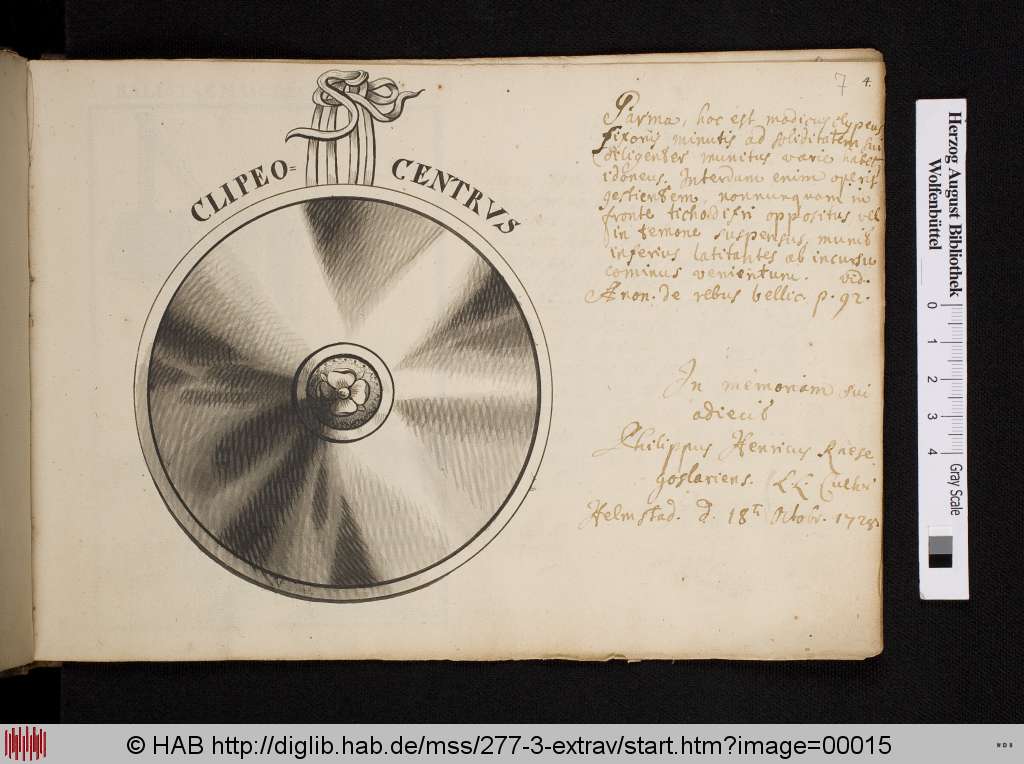 7 4.
CLIPEO= CENTRVS
Parma, hoc est modicus clypeus
fixoris minutis ad soliditatem sui
diligenter munitus varie habet
idoneus. Interdum enim operit
gestientem, nonnunquam in
fronte tichodifri oppositus vel
in temone suspensus, munit
inferius latitantes ab incursu
cominus venientum. vid.
Anon. de rebus bellic. p. 92.
In memoriam sui
adiecit
Philippus Henricus
Goslariens. LL. Cultor
Helmstad. d. 18 Octobr.
Herzog August Bibliothek
Wolfenbüttel
0 1 2 3 4
Gray Scale
© HAB http://diglib.hab.de/mss/277-3-extrav/start.htm?image=00015